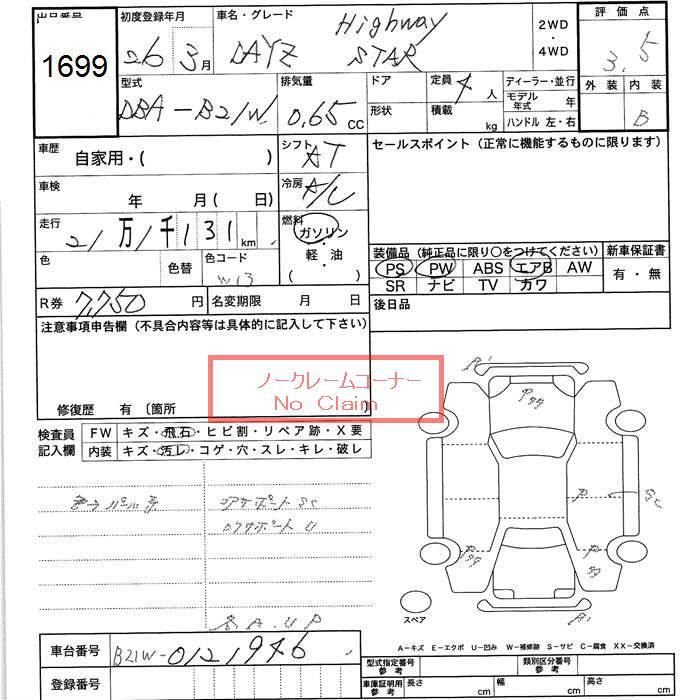 出品番号 初度登録年月 車名・グレード 2WD ・ 4WD 評価点
1699 26 3月 DAYZ Highway STAR 3.5
型式 排気量 ドア 定員 4人 ディーラー・並行 外装 内装
DBA-B21W 0.65 CC 形状 積載 kg モデル年式 年 B
ハンドル 左・右
車歴 自家用・( ) シフト AT セールスポイント (正常に機能するものに限ります)
車検 年 月( 日) 冷房 A/C
走行 21万1千131 km 燃料 ガソリン・軽油 ( )
色 色替 色コード W13
装備品 (純正品に限り○をつけてください) 新車保証書
PS PW ABS エアB AW 有・無
SR ナビ TV カワ
R券 7,750円 名変期限 月 日 後日品
注意事項申告欄 (不具合内容等は具体的に記入して下さい)
ノークレームコーナー
No Claim
修復歴 有 〔箇所
検査員記入欄 FW キズ・飛石・ヒビ割・リペア跡・X要
内装 キズ・汚レ・コゲ・穴・スレ・キレ・破レ
スペア
A-キズ E-エクボ U-凹み W-補修跡 S-サビ C-腐食 XX-交換済
車台番号 B21W-0121946 型式指定番号 参考 類別区分番号 参考
登録番号 車庫証明用 参考 長さ cm 幅 cm 高さ cm